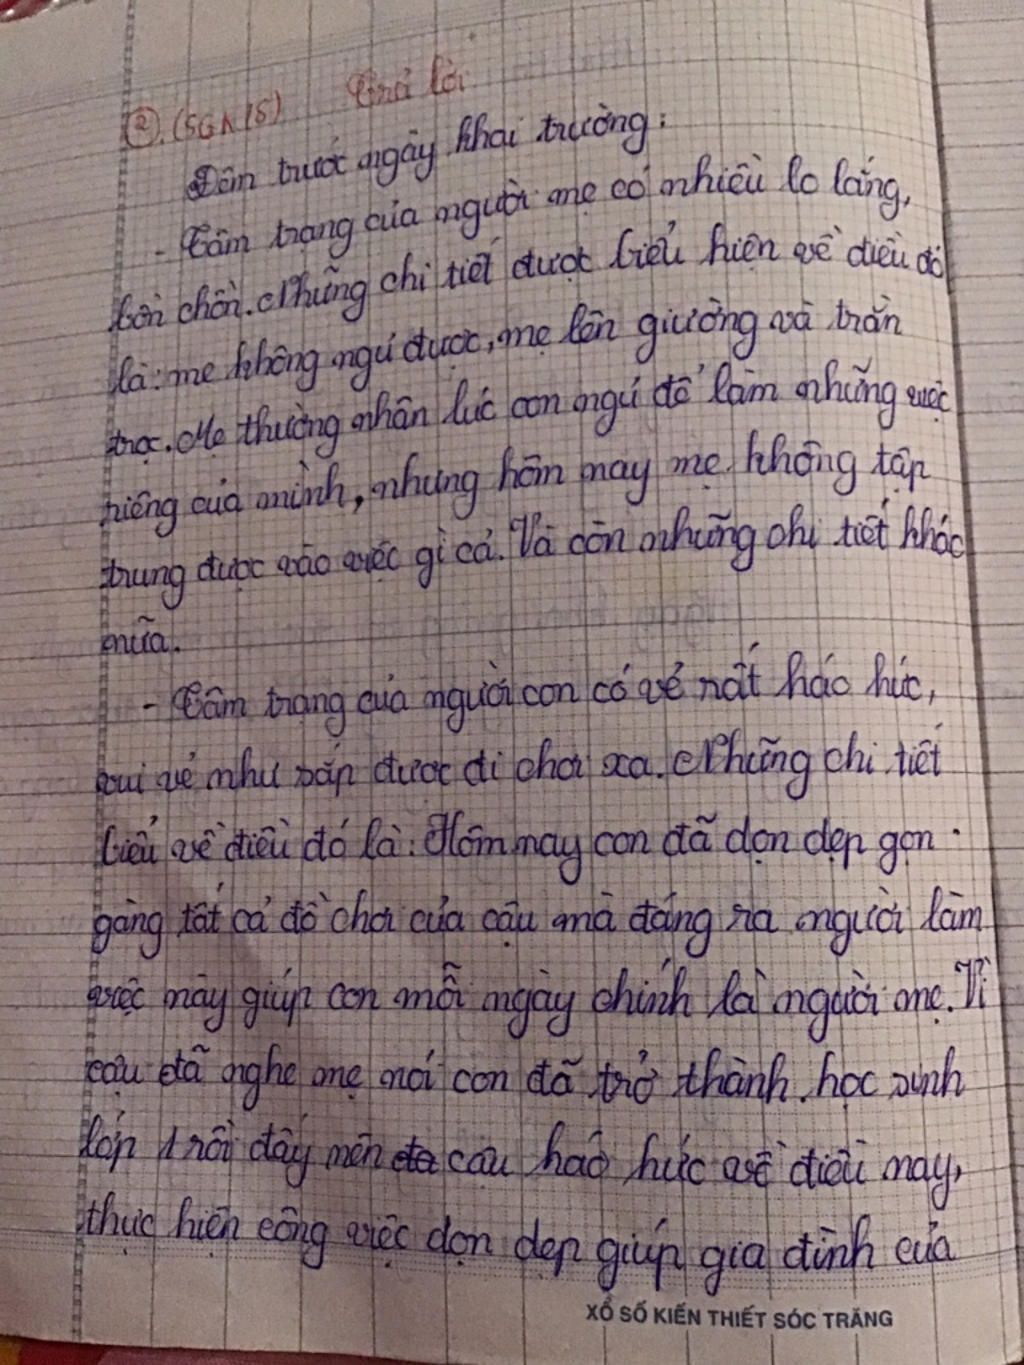 ②. (SGK 15) Trả lời
Đêm trước ngày khai trường:
- Tâm trạng của người mẹ có nhiều lo lắng,
bồn chồn. Những chi tiết được biểu hiện về điều đó
là: mẹ không ngủ được, mẹ lên giường và trằn
trọc. Mẹ thường nhân lúc con ngủ để làm những việc
riêng của mình, nhưng hôm nay mẹ không tập
trung được vào việc gì cả. Và còn những chi tiết khác
nữa.
- Tâm trạng của người con có vẻ rất háo hức,
vui vẻ như sắp được đi chơi xa. Những chi tiết
biểu về điều đó là: Hôm nay con đã dọn dẹp gọn
gàng tất cả đồ chơi của cậu mà đáng ra người làm
việc này giúp con mỗi ngày chính là người mẹ. Vì
cậu đã nghe mẹ nói con đã trở thành học sinh
lớp 1 rồi đấy nên cậu háo hức về điều này,
thực hiện công việc dọn dẹp giúp gia đình của
XỔ SỐ KIẾN THIẾT SÓC TRĂNG